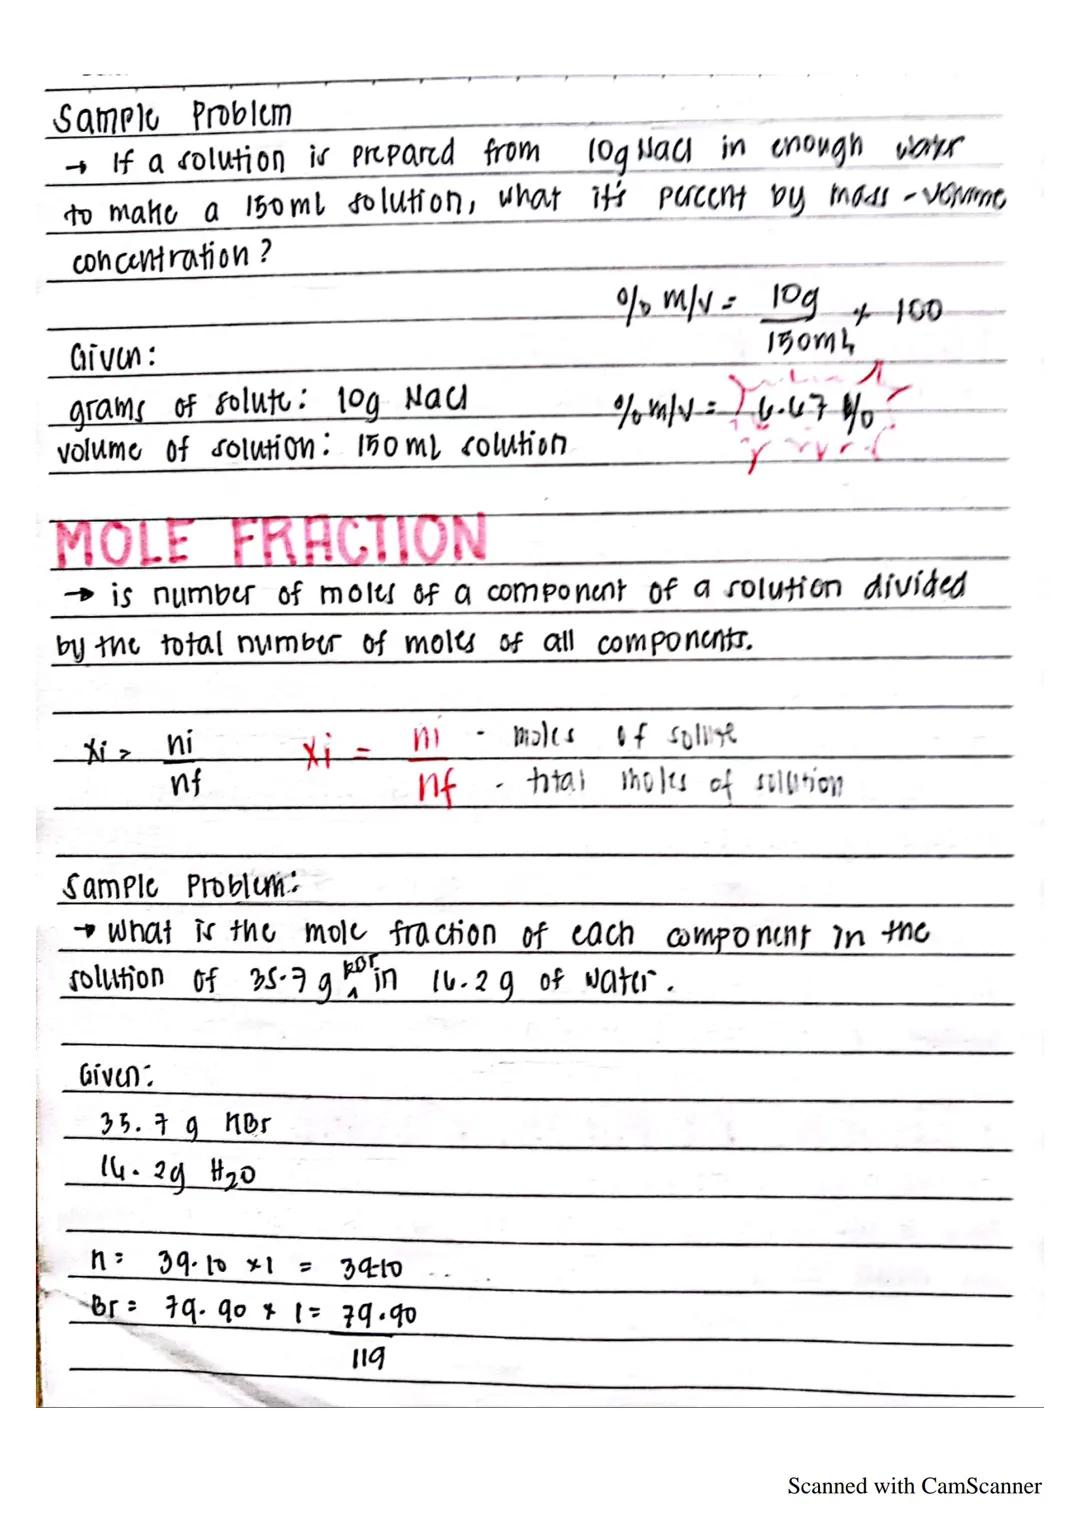 Sample Problem
→ If a solution is prepared from 10g NaCl in enough water
to make a 150ml solution, what it's percent by mass - volume
concentration?
% m/v = 10g / 150mL × 100
Given:
grams of solute: 10g NaCl
% m/v = 6.67 %
volume of solution: 150 mL solution
MOLE FRACTION
→ is number of moles of a component of a solution divided
by the total number of moles of all components.
Xi = ni / nf
Xi = ni / nf
- moles of solute
- total moles of solution
Sample Problem:
→ What is the mole fraction of each component in the
solution of 35.7 g KBr in 16.2 g of water.
Given:
35.7 g KBr
16.2g H2O
K = 39.10 × 1 = 39.10
Br = 79.90 × 1 = 79.90
119
Scanned with CamScanner